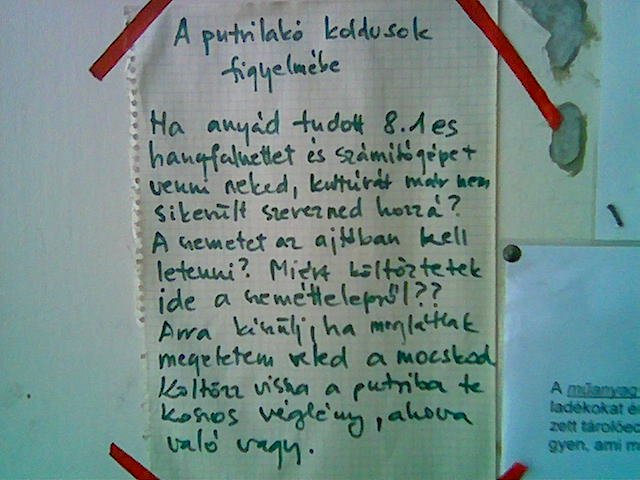 A putrilakó koldusok
figyelmébe
Ha anyád tudott 8.1es
hangfalszettet és számítógépet
venni neked, kultúrát már nem
sikerült szerezned hozzá?
A szemetet az ajtóban kell
letenni? Miért költöztetek
ide a szeméttelepről??
Arra készülj, ha meglátlak
megetetem veled a mocskod
költözz vissza a putriba te
koszos véglény, ahova
való vagy.
A műanyag
ladékokat é
zett tárolóed
gyen, ami m